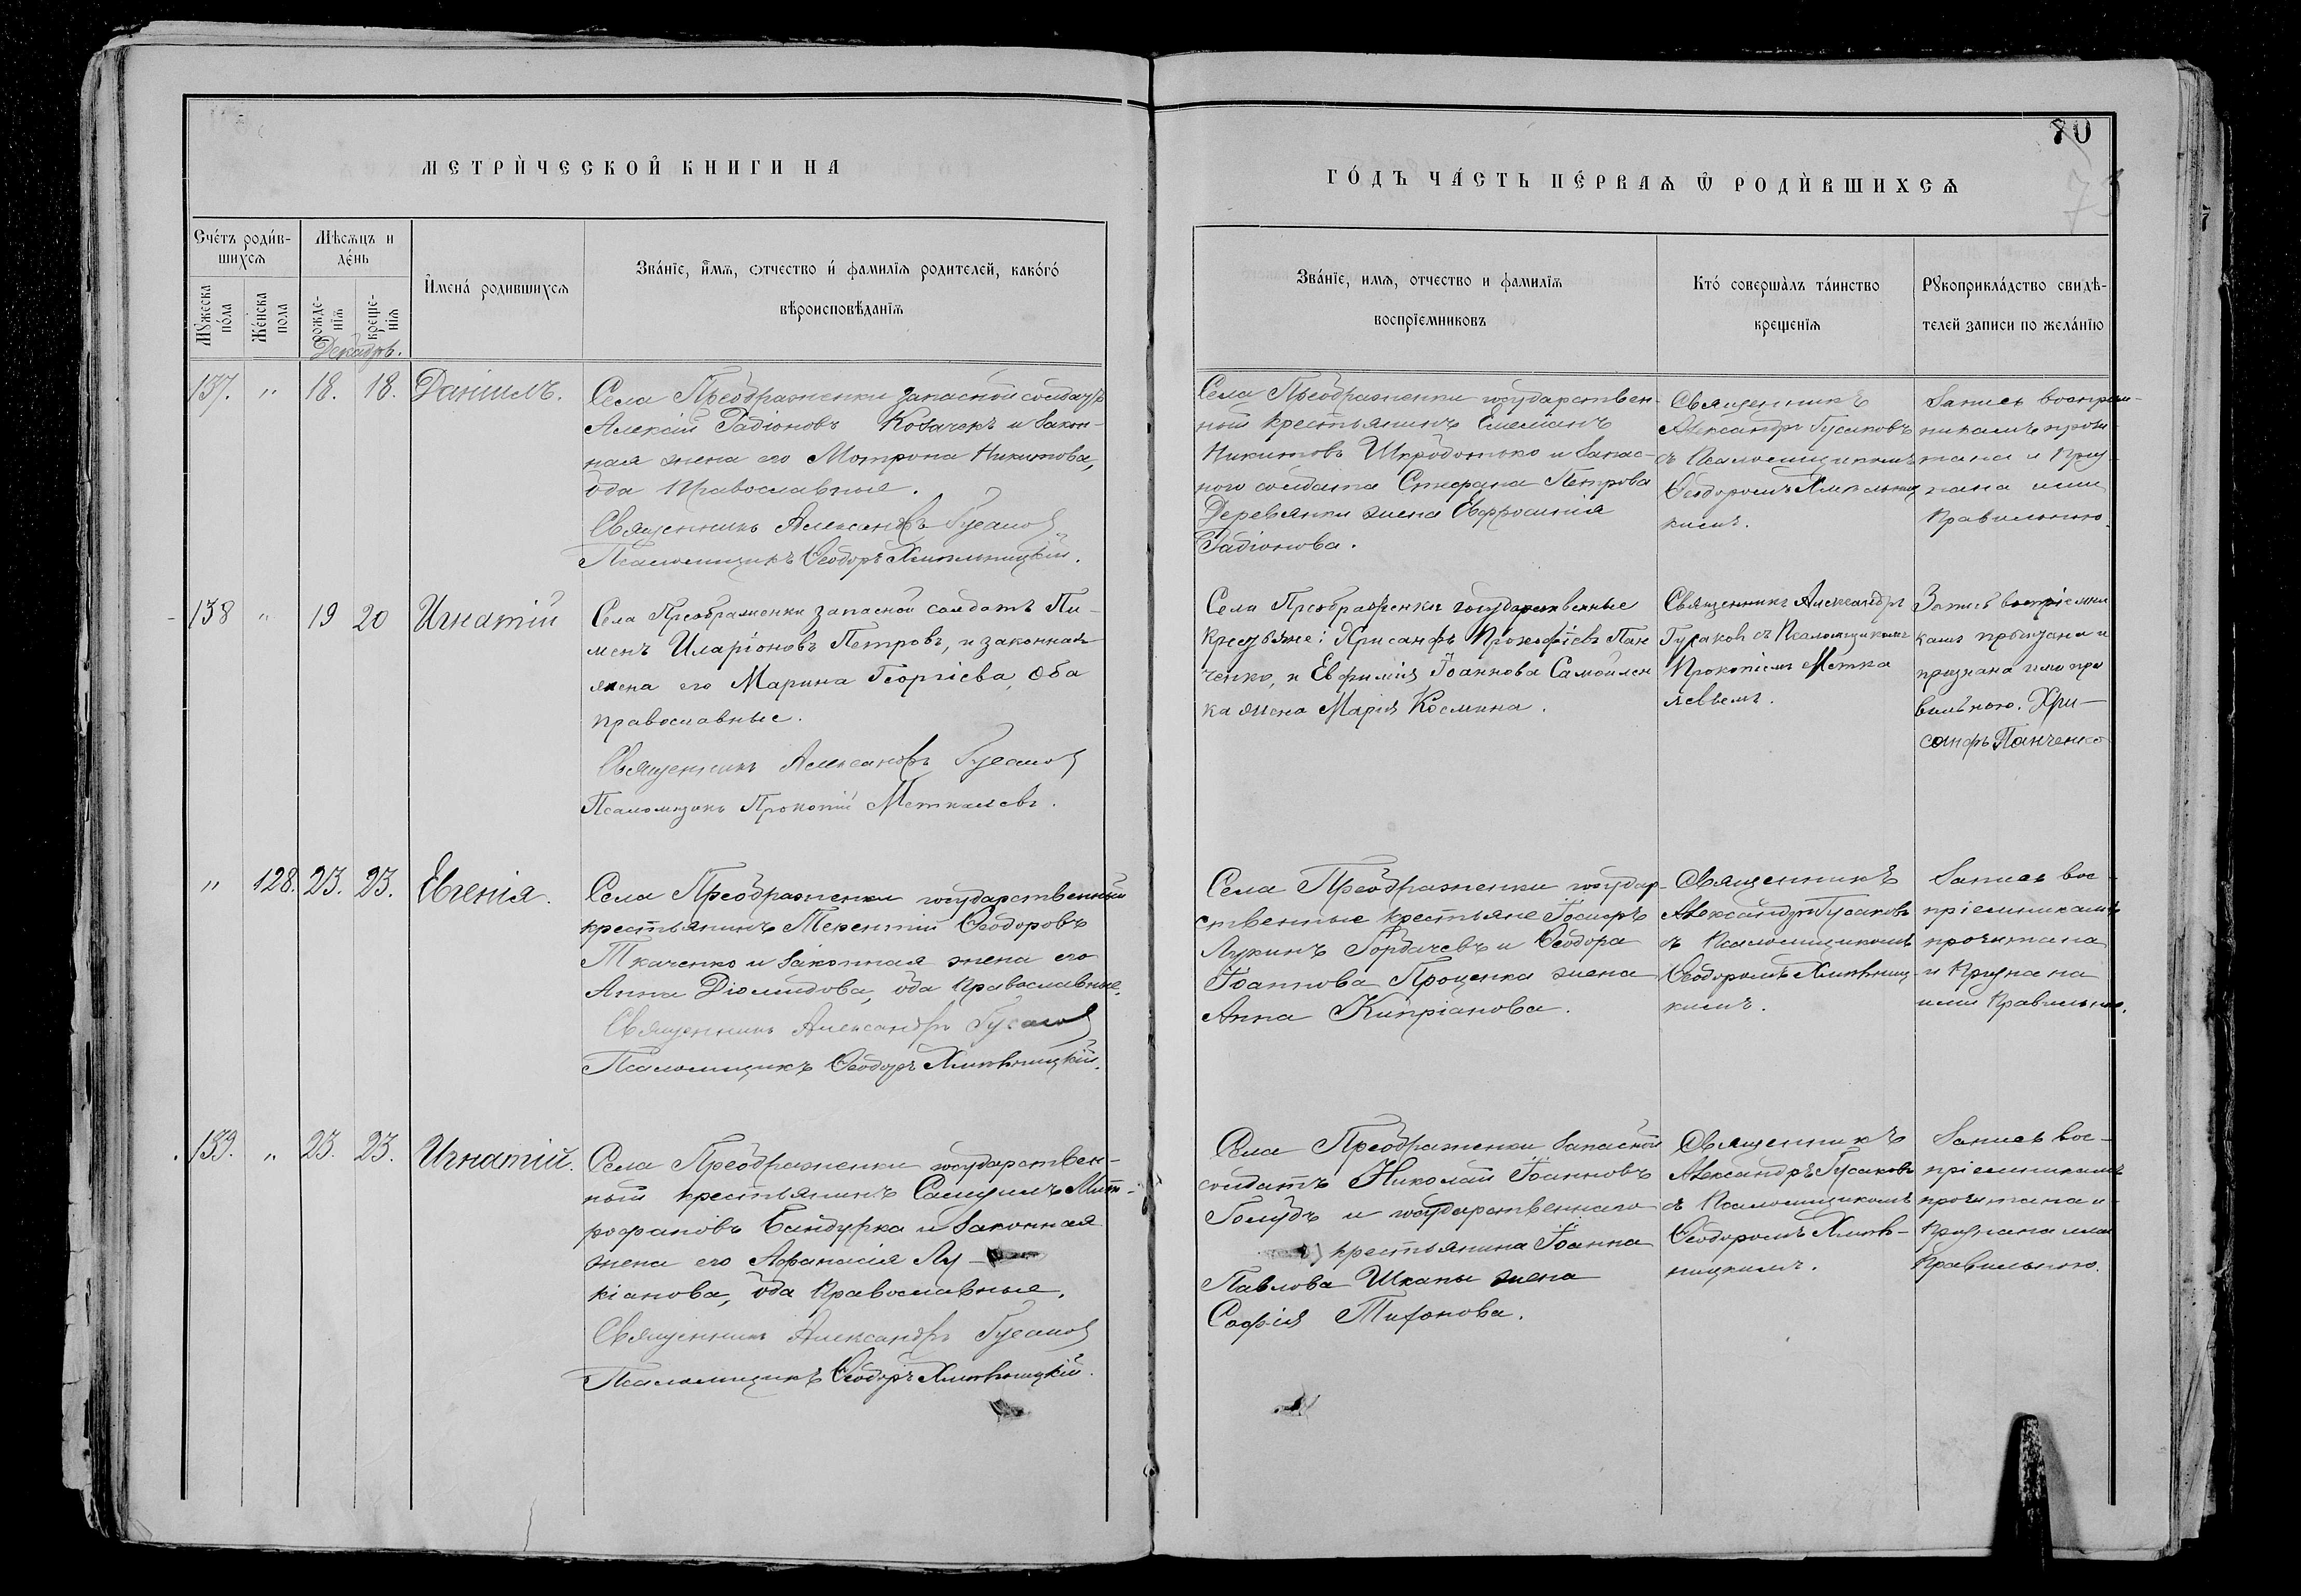 80
73
МЕТРИ́ЧЕСКОЙ КНИГИ НА
ГО́ДЪ ЧА́СТЬ ПЕ́РВАѦ Ѡ РОДИ́ВШИХСѦ
Сче́тъ роди́в-
шихсѧ
Мѣсѧцъ и
де́нь
Мꙋжеска
по́ла
Же́нска
пола
рожде-
нїѧ
креще-
нїѧ
Декабрь.
И҆мена́ родившихсѧ
Зва́нїе, и҆́мѧ, ѻтчество и҆ фамилїѧ родителей, како́го́
вѣроисповѣданїѧ
Зва́нїе, имѧ, отчество и фамилїѧ
воспрїемниковъ
Кто́ соверша̀лъ та́инство
крещенїѧ
Рꙋкоприкла́дство свидѣ-
телей записи по жела́нїю
137. " 18. 18. Даніилъ.
Села Преображенки запасной солдатъ
Алексій Радіоновъ Козачекъ и закон-
ная жена его Мотрона Никитова,
оба православные.
Священникъ Александръ Гусаков
Псаломщикъ Ѳеодоръ Хмѣльницкій.
Села Преображенки государствен-
ный крестьянинъ Емеліанъ
Никитовъ Шкродотько и запас-
ного солдата Стефана Петрова
Деревянки жена Евфросинія
Радіонова.
Священникъ
Александръ Гусаковъ
съ Псаломщикомъ
Ѳеодоромъ Хмѣльниц
кимъ.
Запись воспріем-
никамъ прочи
тана и приз
нана ими
правильною.
138 " 19 20 Игнатій
Села Преображенки запасной солдатъ Пи-
менъ Иларіоновъ Петровъ, и законная
жена его Марина Георгіева, оба
православные.
Священникъ Александръ Гусаков
Псаломщикъ Прокопій Меткалевъ.
Села Преображенки государственные
крестьяне: Хрисанфъ Прокофіевъ Пан
ченко, и Евфимія Іоаннова Самойлен
ка жена Марія Космина.
Священникъ Александръ
Гусаковъ съ Псаломщикомъ
Прокопіемъ Метка
левымъ.
Запись воспріемни
камъ прочитана и
признана ими пра
вильною. Хри-
санфъ Панченко
" 128. 23. 23. Евгенія.
Села Преображенки государственный
крестьянинъ Терентій Ѳеодоровъ
Ткаченко и законная жена его
Анна Діомидова, оба православные.
Священникъ Александръ Гусаков
Псаломщикъ Ѳеодоръ Хмѣльницкій.
Села Преображенки государ-
ственные крестьяне Іосифъ
Лукинъ Горбачевъ и Ѳеодора
Іоаннова Проценка жена
Анна Кипріанова.
Священникъ
Александръ Гусаковъ
съ Псаломщикомъ
Ѳеодоромъ Хмѣльниц-
кимъ.
Запись вос-
пріемникамъ
прочитана
и признана
ими правильною.
139. " 23. 23. Игнатій.
Села Преображенки государствен-
ный крестьянинъ Самуилъ Мит-
рофановъ Бандурка и законная
жена его Афанасія Лу-
кіанова, оба православные.
Священникъ Александръ Гусаков
Псаломщикъ Ѳеодоръ Хмѣльницкій.
Села Преображенки запасной
солдатъ Николай Іоанновъ
Голубъ и государственнаго
крестьянина Іоанна
Павлова Шкапы жена
Софія Тифонова.
Священникъ
Александръ Гусаковъ
съ Псаломщикомъ
Ѳеодоромъ Хмѣль-
ницкимъ.
Запись вос-
пріемникамъ
прочитана и
признана ими
правильною.